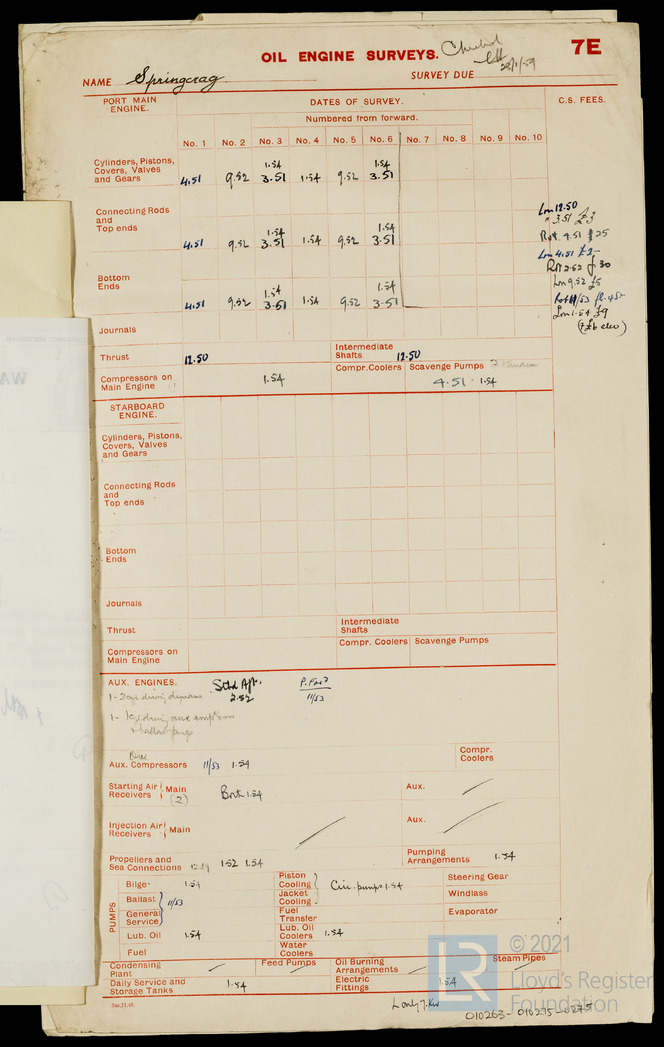 OIL ENGINE SURVEYS.
7E
28/1/59
NAME Springcrag
SURVEY DUE
PORT MAIN ENGINE.
DATES OF SURVEY.
C.S. FEES.
Numbered from forward.
No. 1 No. 2 No. 3 No. 4 No. 5 No. 6 No. 7 No. 8 No. 9 No. 10
Cylinders, Pistons,
1.54 1.54
Covers, Valves
and Gears 4.51 9.52 3.51 1.54 9.52 3.51
Connecting Rods
Lon 12.50
and
" 3.51 £3
Top ends
1.54 1.54
4.51 9.52 3.51 1.54 9.52 3.51
Rot. 4.51 25
Lon 4.51 £2-
Rot 2.52 f. 30
Bottom
Ends
1.54 1.54
4.51 9.52 3.51 1.54 9.52 3.51
Lon 9.52 £5
Rot 11/53 fl. 45-
Lon 1.54 £9
Journals
Thrust 12.50
Intermediate
Shafts 12.50
Compressors on
Main Engine 1.54
Compr. Coolers
Scavenge Pumps
4.51 1.54
STARBOARD
ENGINE.
Cylinders, Pistons,
Covers, Valves
and Gears
Connecting Rods
and
Top ends
Bottom
Ends
Journals
Thrust
Intermediate
Shafts
Compressors on
Main Engine
Compr. Coolers
Scavenge Pumps
AUX. ENGINES.
Stbd Aft.
2.52
P. For'd
11/53
Aux. Compressors 11/53 1.54
Compr.
Coolers
Starting Air
Receivers
Main
(2)
Both 1.54
Aux.
Injection Air
Receivers
Main
Aux.
Propellers and
Sea Connections 1.52 1.54
Pumping
Arrangements 1.54
PUMPS
Bilge 1.54
Ballast
General
Service
11/53
Lub. Oil 1.54
Fuel
Piston
Cooling
Jacket
Cooling
Circ. pumps 1.54
Fuel
Transfer
Lub. Oil
Coolers 1.54
Water
Coolers
Steering Gear
Windlass
Evaporator
Condensing
Plant
Feed Pumps
Oil Burning
Arrangements
Steam Pipes
Daily Service and
Storage Tanks 1.54
Electric
Fittings 1.54
© 2021
LR
Lloyd's Register
Foundation
010263-010275-0275